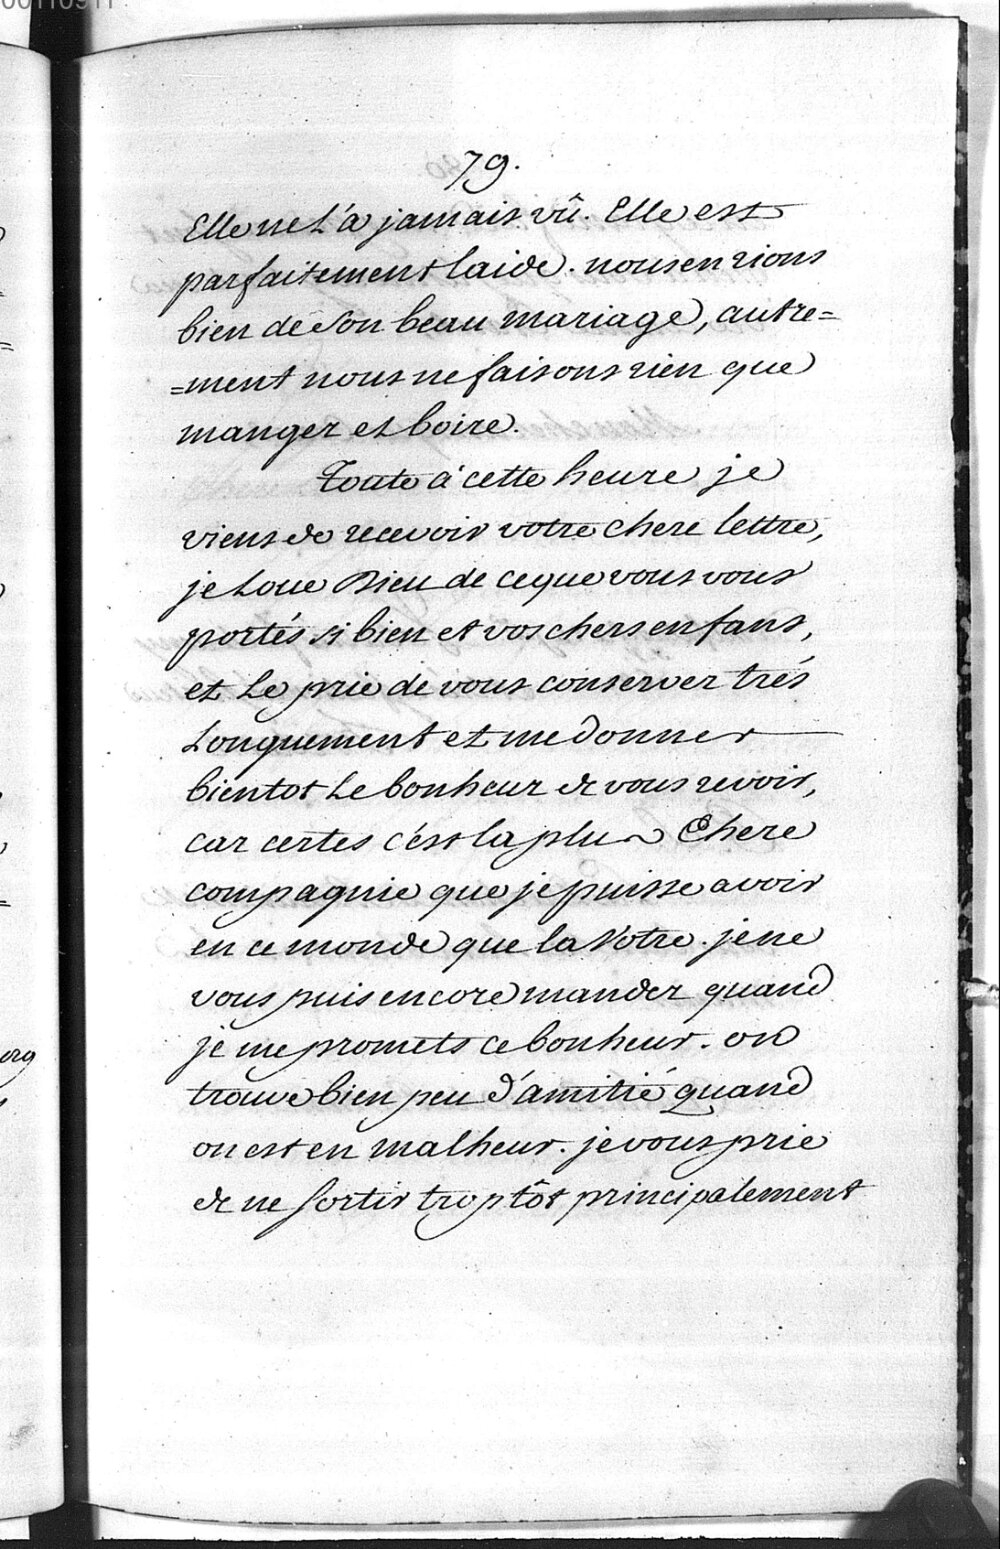 00110911
79.
Elle ne l'a jamais vû. Elle est
parfaitement laide. nous en rions
bien de son beau mariage, autre=
=ment nous ne faisons rien que
manger et boire.
Toute à cette heure je
viens de recevoir votre chere lettre,
je Loue Dieu de ce que vous vous
portés si bien et vos chers enfans,
et Le prie de vous conserver trés
Longuement et me donner
bientot Le bonheur de vous revoir,
car certes c'est la plus Chere
compagnie que je puisse avoir
en ce monde que la Votre. je ne
vous puis encore mander quand
je me promets ce bonheur. on
trouve bien peu d'amitié quand
on est en malheur. je vous prie
de ne sortir trop tôt principalement